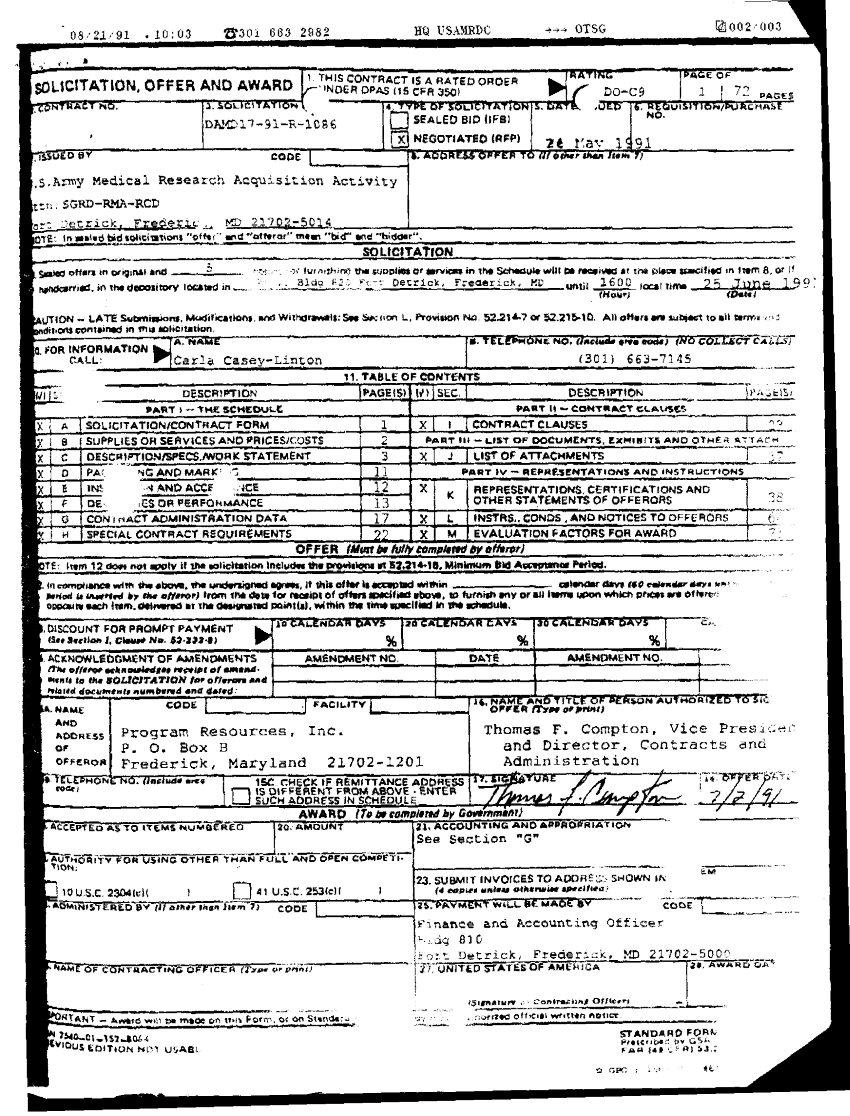 08/21/91 10:03 ☎301 663 2982 HQ USAMRDC →→→ OTSG 002/003
SOLICITATION, OFFER AND AWARD
1. THIS CONTRACT IS A RATED ORDER
UNDER DPAS (15 CFR 350)
RATING
DO-C9
PAGE OF
1 72 PAGES
CONTRACT NO.
3. SOLICITATION
DAMD17-91-R-1086
4. TYPE OF SOLICITATION
SEALED BID (IFB)
X NEGOTIATED (RFP)
5. DATE UED
May 1991
6. REQUISITION/PURCHASE
NO.
ISSUED BY CODE
.S.Army Medical Research Acquisition Activity
ttn: SGRD-RMA-RCD
ort Detrick, Frederic , MD 21702-5014
8. ADDRESS OFFER TO (If other than Item 7)
OTE: In sealed bid solicitations "offer" and "offeror" mean "bid" and "bidder".
SOLICITATION
Sealed offers in original and 5 or furnishing the supplies or services in the Schedule will be received at the place specified in Item 8, or if
handcarried, in the depository located in Bldg 820 Fort Detrick, Frederick, MD until 1600 local time 25 June 199
(Hour) (Date)
CAUTION — LATE Submissions, Modifications, and Withdrawals: See Section L, Provision No. 52.214-7 or 52.215-10. All offers are subject to all terms and
onditions contained in this solicitation.
0. FOR INFORMATION
CALL:
A. NAME
Carla Casey-Linton
B. TELEPHONE NO. (Include area code) (NO COLLECT CALLS)
(301) 663-7145
11. TABLE OF CONTENTS
DESCRIPTION PAGE(S) (√) SEC. DESCRIPTION PAGE(S)
PART I — THE SCHEDULE PART II — CONTRACT CLAUSES
X A SOLICITATION/CONTRACT FORM 1 X I CONTRACT CLAUSES
X B SUPPLIES OR SERVICES AND PRICES/COSTS 2 PART III — LIST OF DOCUMENTS, EXHIBITS AND OTHER ATTACH
X C DESCRIPTION/SPECS./WORK STATEMENT 3 X J LIST OF ATTACHMENTS 37
X D PA NG AND MARK G 11 PART IV — REPRESENTATIONS AND INSTRUCTIONS
X E INS N AND ACCE NCE 12 X K REPRESENTATIONS, CERTIFICATIONS AND
OTHER STATEMENTS OF OFFERORS 38
X F DE IES OR PERFORMANCE 13
X G CONTRACT ADMINISTRATION DATA 17 X L INSTRS., CONDS., AND NOTICES TO OFFERORS
X H SPECIAL CONTRACT REQUIREMENTS 22 X M EVALUATION FACTORS FOR AWARD
OFFER (Must be fully completed by offeror)
OTE: Item 12 does not apply if the solicitation includes the provisions at 52.214-16, Minimum Bid Acceptance Period.
2. In compliance with the above, the undersigned agrees, if this offer is accepted within calendar days (60 calendar days
period is inserted by the offeror) from the date for receipt of offers specified above, to furnish any or all items upon which prices are offere
opposite each item, delivered at the designated point(s), within the time specified in the schedule.
. DISCOUNT FOR PROMPT PAYMENT
(See Section I, Clause No. 52-232-8)
10 CALENDAR DAYS
%
20 CALENDAR DAYS
%
30 CALENDAR DAYS
%
CA
. ACKNOWLEDGMENT OF AMENDMENTS
(The offeror acknowledges receipt of amend-
ments to the SOLICITATION for offerors and
related documents numbered and dated:
AMENDMENT NO. DATE AMENDMENT NO.
5A. NAME
AND
ADDRESS
OF
OFFEROR
CODE FACILITY
Program Resources, Inc.
P. O. Box B
Frederick, Maryland 21702-1201
16. NAME AND TITLE OF PERSON AUTHORIZED TO SIG
OFFER (Type or print)
Thomas F. Compton, Vice Presiden
and Director, Contracts and
Administration
TELEPHONE NO. (Include area
code)
15C. CHECK IF REMITTANCE ADDRESS
IS DIFFERENT FROM ABOVE - ENTER
SUCH ADDRESS IN SCHEDULE
17. SIGNATURE
Thomas F. Compton
18. OFFER DATE
7/2/91
AWARD (To be completed by Government)
. ACCEPTED AS TO ITEMS NUMBERED
20. AMOUNT
21. ACCOUNTING AND APPROPRIATION
See Section "G"
. AUTHORITY FOR USING OTHER THAN FULL AND OPEN COMPETI-
TION:
10 U.S.C. 2304(c)( ) 41 U.S.C. 253(c)( )
23. SUBMIT INVOICES TO ADDRESS SHOWN IN
(4 copies unless otherwise specified)
EM
. ADMINISTERED BY (If other than Item 7) CODE
25. PAYMENT WILL BE MADE BY CODE
Finance and Accounting Officer
ldg 810
Fort Detrick, Frederick, MD 21702-5000
. NAME OF CONTRACTING OFFICER (Type or print)
27. UNITED STATES OF AMERICA
(Signature of Contracting Officer)
28. AWARD DA
PORTANT — Award will be made on this Form, or on Standard
thorized official written notice
N 7540-01-152-8064
EVIOUS EDITION NOT USABL
STANDARD FORM
Prescribed by GSA
FAR (48 CFR) 53.2